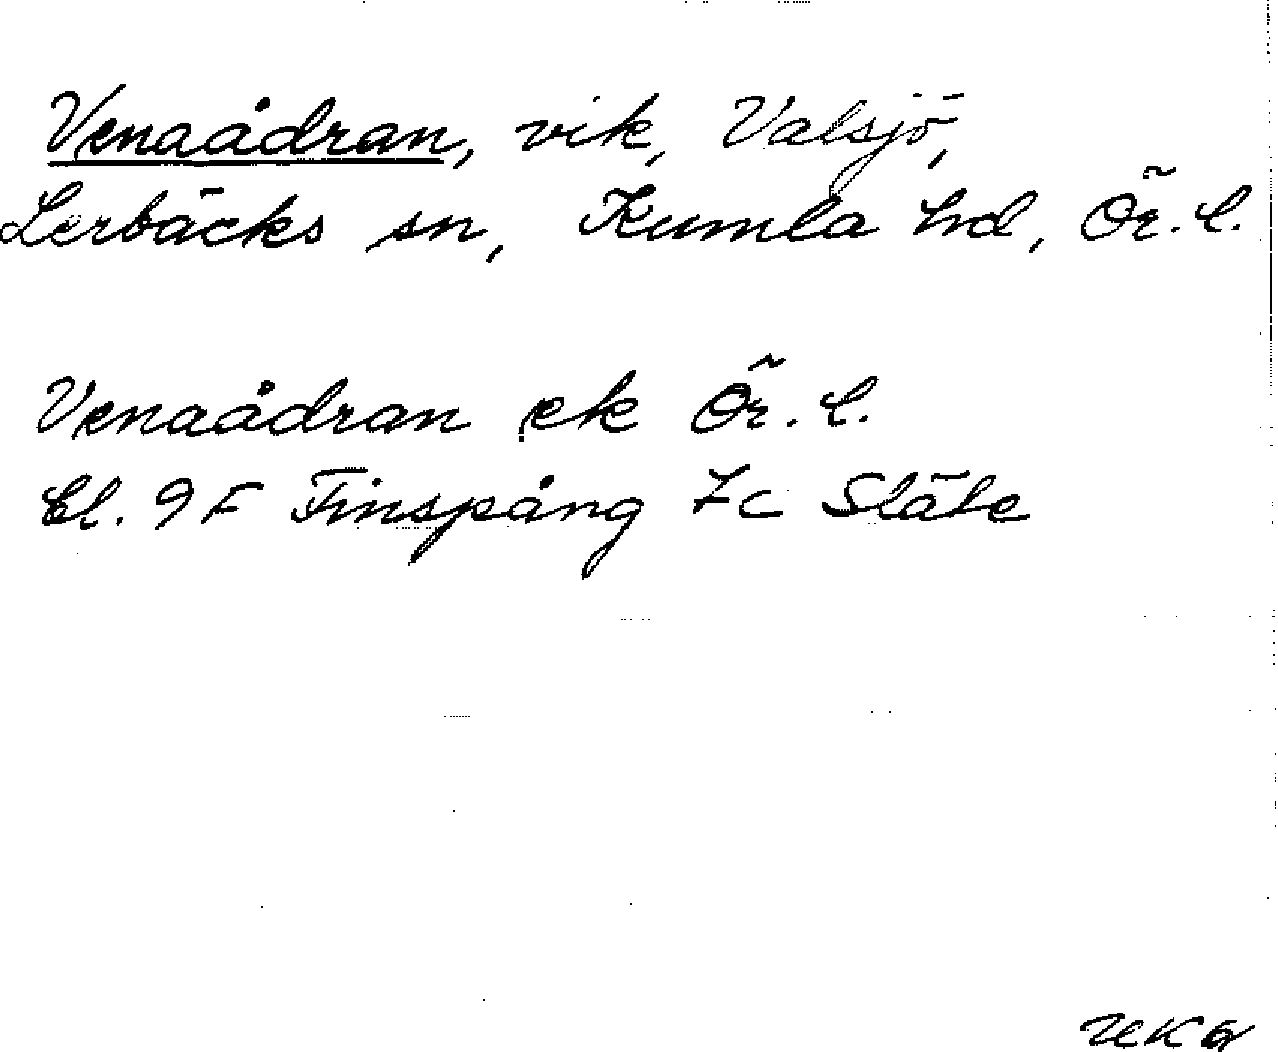 Venaådran, vik, Valsjö,
Lerbäcks sn, Kumla hd, Ör. l.
Venaådran ek Ör. l.
bl. 9F Finspång 7c